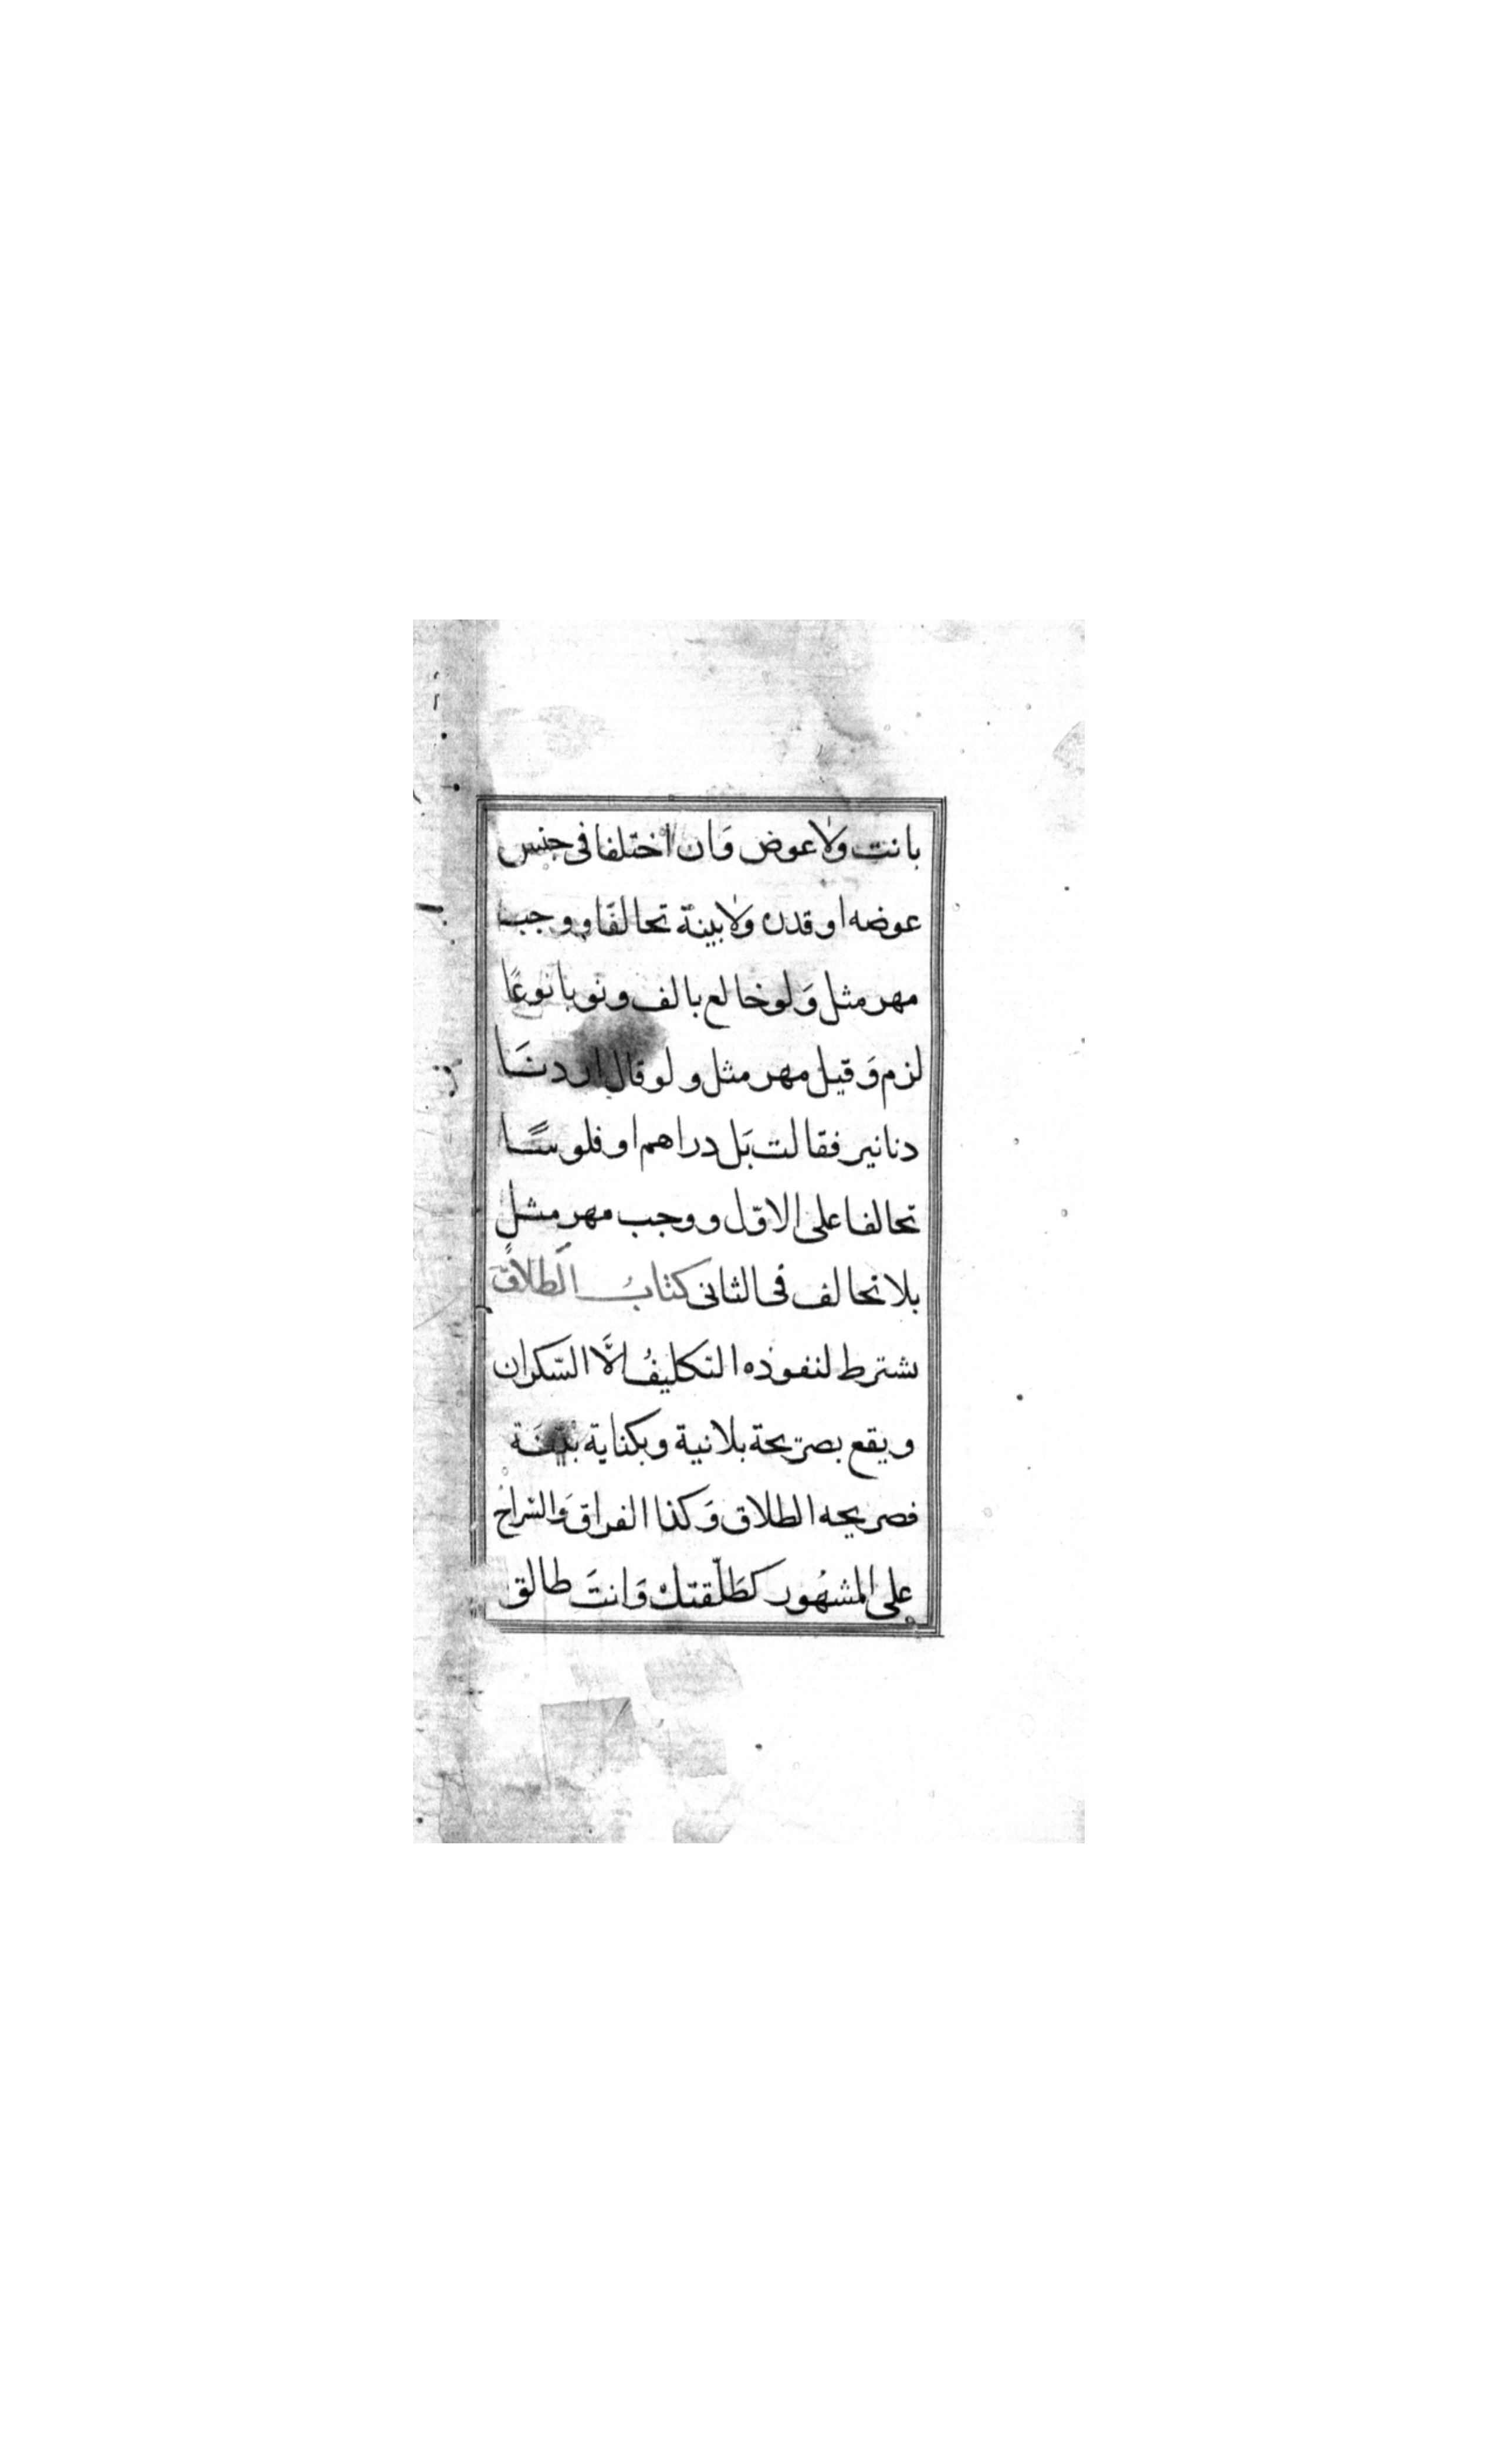 بانت ولا عوض وَان اختلفا فى جنس
عوضه او قدره ولا بينة تحالفا ووجب
مهر مثل وَلو خالع بالف ونويا نوعًا
لزم وَقيل مهر مثل ولو قال اردنا
دنانير فقالت بَل دراهم او فلوسًا
تحالفا على الاوّل ووجب مهر مثل
بلا تحالف فى الثانى كتابُ الطلاق
يشترط لنفوذه التكليفُ الَّا السّكران
ويقع بصريحة بلانية وبكناية بنية
فصريحه الطلاق وَكذا الفراق وَالسّراحُ
على المشهُور كطَلّقتك وَانتَ طالق